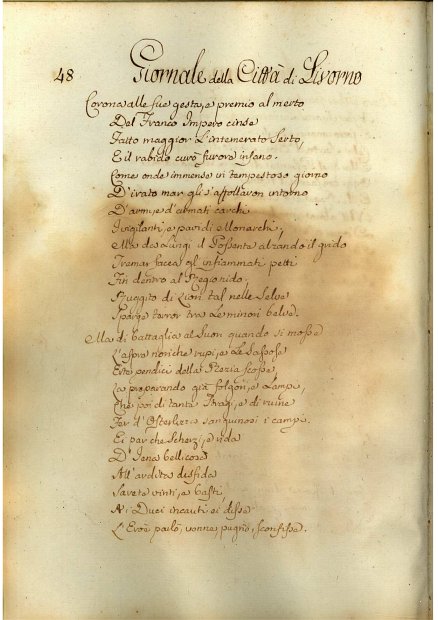 48 Giornale della Città di Livorno
Corona alle sue gesta, e premio al merto
Del Franco Impero cinse
Fatto maggior l'intemerato Serto,
E il rabido curò furore insano.
Come onde immense in tempestoso giorno
D'irato mar gli s'affollavon intorno
D'armi, e d'armati carchi
I vigilanti, e pavidi Monarchi,
Ma da Lungi il Possente alzando il grido
Tremar facea gl'infiammati petti
Fin dentro al Regio nido,
Ruggito di Lion tal nelle Selve
Sparge terror tra Le minori belve.
Ma di battaglia al Suon quando si mosse
L'aspre noriche rupi, e Le Sassose
Erte pendici della Rezia scosse,
Là preparando già folgori, e Lampi,
Che poi di tanta stragi, e di ruine
Fer d'Osterlizza sanguinosi i campi.
Ei par che Scherzi, e rida
D'Jena bellicosa
All'ardita disfida
Sarete vinti, e basti,
Ai Duci incauti ei disse
L'Eroe parlò, venne, pugnò, sconfisse.